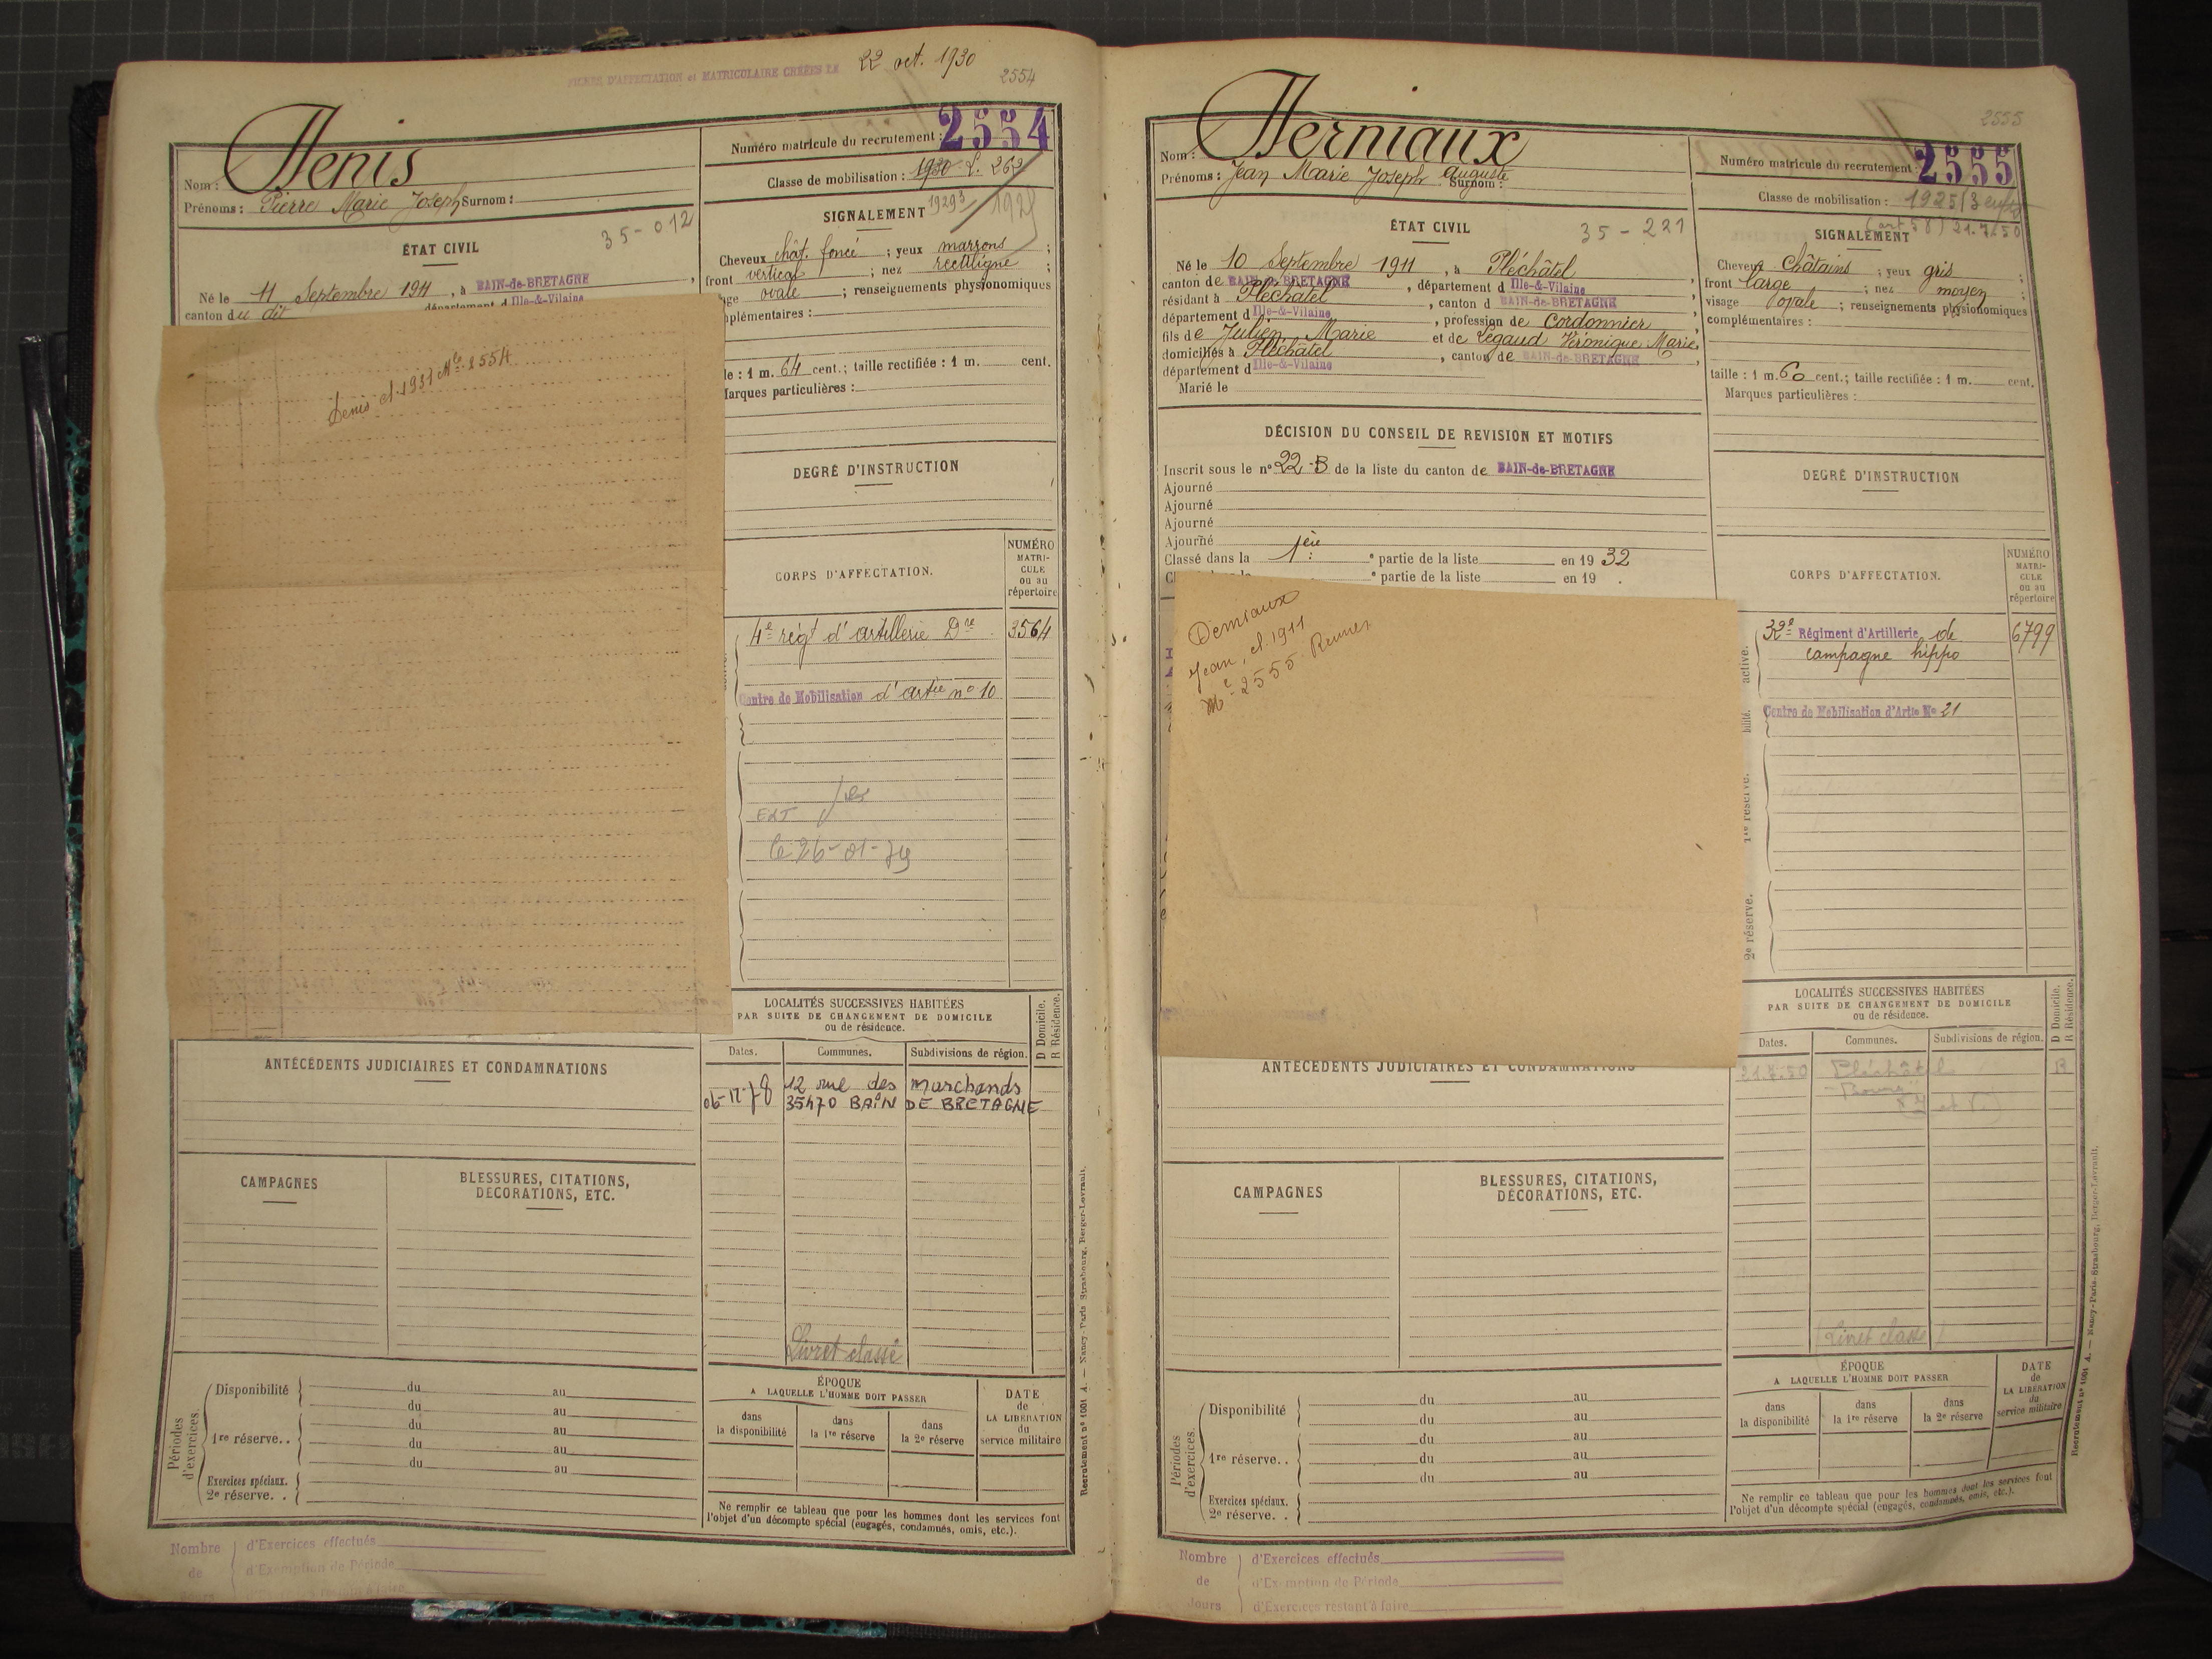 FICHES D'AFFECTATION et MATRICULAIRE CRÉÉES LE 22 oct. 1930
2554
Nom : Denis
Prénoms : Pierre Marie Joseph Surnom :
Numéro matricule du recrutement : 2554
Classe de mobilisation : 1930
ÉTAT CIVIL
35-012
Né le 11 Septembre 1911, à BAIN-de-BRETAGNE,
canton du dit département d Ille-&-Vilaine
SIGNALEMENT
Cheveux chât. foncé ; yeux marrons ;
front vertical ; nez rectiligne ;
ovale ; renseignements physionomiques
complémentaires :
1 m. 64 cent.; taille rectifiée : 1 m. cent.
Marques particulières :
Denis cl. 1931 Mle 2554
DEGRÉ D'INSTRUCTION
CORPS D'AFFECTATION.
NUMÉRO
MATRI-
CULE
ou au
répertoire
4e régt d'artillerie Dre 3564
Centre de Mobilisation d'artie n° 10
EXT
le 26-01-79
LOCALITÉS SUCCESSIVES HABITÉES
PAR SUITE DE CHANGEMENT DE DOMICILE
ou de résidence.
D Domicile.
R Résidence.
Dates. Communes. Subdivisions de région.
06-12-78 12 rue des Marchands
35470 BAIN DE BRETAGNE
Livret classé
ANTÉCÉDENTS JUDICIAIRES ET CONDAMNATIONS
CAMPAGNES
BLESSURES, CITATIONS,
DÉCORATIONS, ETC.
Périodes d'exercices.
Disponibilité du au
du au
1re réserve. . du au
du au
du au
Exercices spéciaux.
2e réserve. .
ÉPOQUE
A LAQUELLE L'HOMME DOIT PASSER
dans la disponibilité
dans la 1re réserve
dans la 2e réserve
DATE
de
LA LIBÉRATION
du
service militaire
Ne remplir ce tableau que pour les hommes dont les services font
l'objet d'un décompte spécial (engagés, condamnés, omis, etc.).
Recrutement n° 1001 A. — Nancy-Paris-Strasbourg, Berger-Levrault.
Nombre d'Exercices effectués
de d'Exemption de Période
Jours d'Exercices restant à faire
2555
Nom : Derniaux
Prénoms : Jean Marie Joseph Auguste
Surnom :
Numéro matricule du recrutement : 2555
Classe de mobilisation : 1925
(art 58) 21.7.50
ÉTAT CIVIL
35-221
Né le 10 Septembre 1911, à Pléchâtel
canton de BAIN-de-BRETAGNE, département d Ille-&-Vilaine,
résidant à Pléchâtel, canton d BAIN-de-BRETAGNE,
département d Ille-&-Vilaine, profession de Cordonnier,
fils de Julien Marie et de Legaud Véronique Marie,
domiciliés à Pléchâtel, canton de BAIN-de-BRETAGNE,
département d Ille-&-Vilaine
Marié le
SIGNALEMENT
Cheveux châtains ; yeux gris ;
front large ; nez moyen ;
visage ovale ; renseignements physionomiques
complémentaires :
taille : 1 m. 60 cent.; taille rectifiée : 1 m. cent.
Marques particulières :
DÉCISION DU CONSEIL DE REVISION ET MOTIFS
Inscrit sous le n° 22-B de la liste du canton de BAIN-de-BRETAGNE
Ajourné
Ajourné
Ajourné
Ajourné
Classé dans la 1ère e partie de la liste en 1932
e partie de la liste en 19 .
DEGRÉ D'INSTRUCTION
Derniaux
Jean, cl. 1911
Mle 2555 Rennes
CORPS D'AFFECTATION.
NUMÉRO
MATRI-
CULE
ou au
répertoire
active.
32e Régiment d'Artillerie de 6799
campagne hippo
Centre de Mobilisation d'Artie N° 21
1re réserve.
2e réserve.
LOCALITÉS SUCCESSIVES HABITÉES
PAR SUITE DE CHANGEMENT DE DOMICILE
ou de résidence.
D Domicile.
R Résidence.
Dates. Communes. Subdivisions de région.
21.7.50 Pléchâtel R
Livret classé
ANTÉCÉDENTS JUDICIAIRES ET CONDAMNATIONS
CAMPAGNES
BLESSURES, CITATIONS,
DÉCORATIONS, ETC.
Périodes d'exercices.
Disponibilité du au
du au
1re réserve. . du au
du au
du au
Exercices spéciaux.
2e réserve. .
ÉPOQUE
A LAQUELLE L'HOMME DOIT PASSER
dans la disponibilité
dans la 1re réserve
dans la 2e réserve
DATE
de
LA LIBÉRATION
du
service militaire
Ne remplir ce tableau que pour les hommes dont les services font
l'objet d'un décompte spécial (engagés, condamnés, omis, etc.).
Recrutement n° 1001 A. — Nancy-Paris-Strasbourg, Berger-Levrault.
Nombre d'Exercices effectués
de d'Exemption de Période
Jours d'Exercices restant à faire